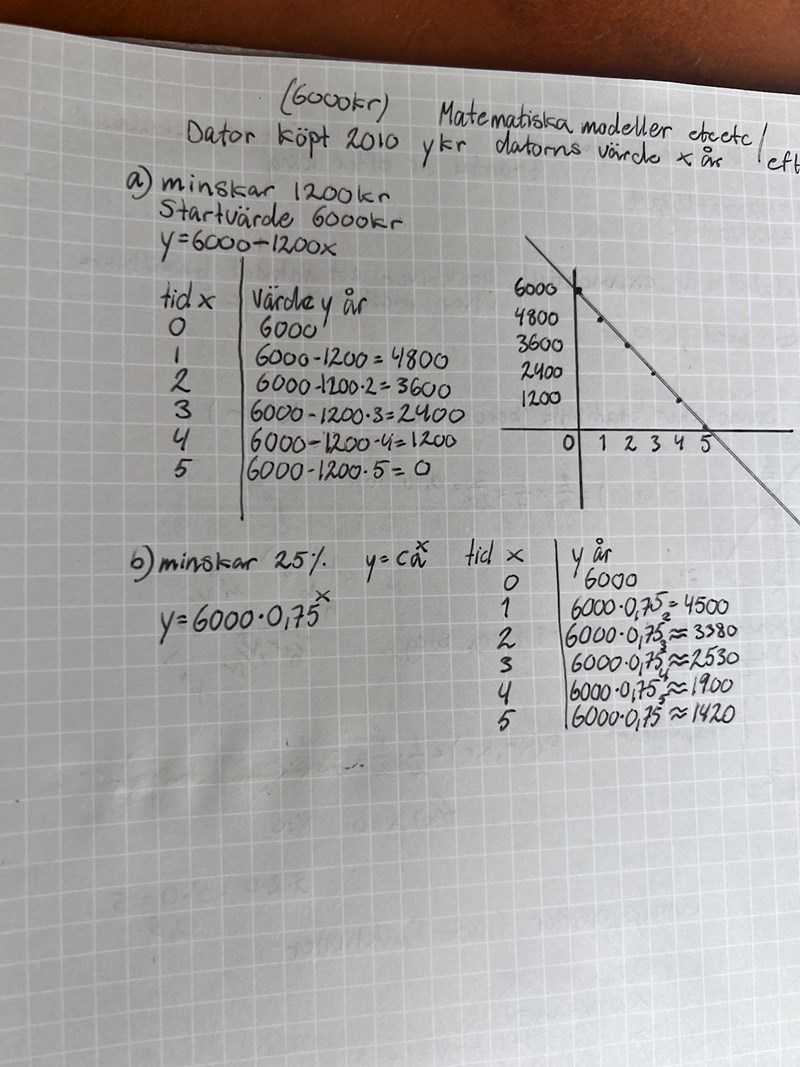 (6000kr) Matematiska modeller etcetc/
Dator köpt 2010 ykr datorns värde x år /eft
a) minskar 1200kr
Startvärde 6000kr
y=6000-1200x
tid x | värde y år
0 6000
1 6000-1200=4800
2 6000-1200·2=3600
3 6000-1200·3=2400
4 6000-1200·4=1200
5 6000-1200·5=0
6000
4800
3600
2400
1200
0 1 2 3 4 5
b) minskar 25% y=ca^x
y=6000·0,75^x
tid x | y år
0 6000
1 6000·0,75=4500
2 6000·0,75^2≈3380
3 6000·0,75^3≈2530
4 6000·0,75^4≈1900
5 6000·0,75^5≈1420